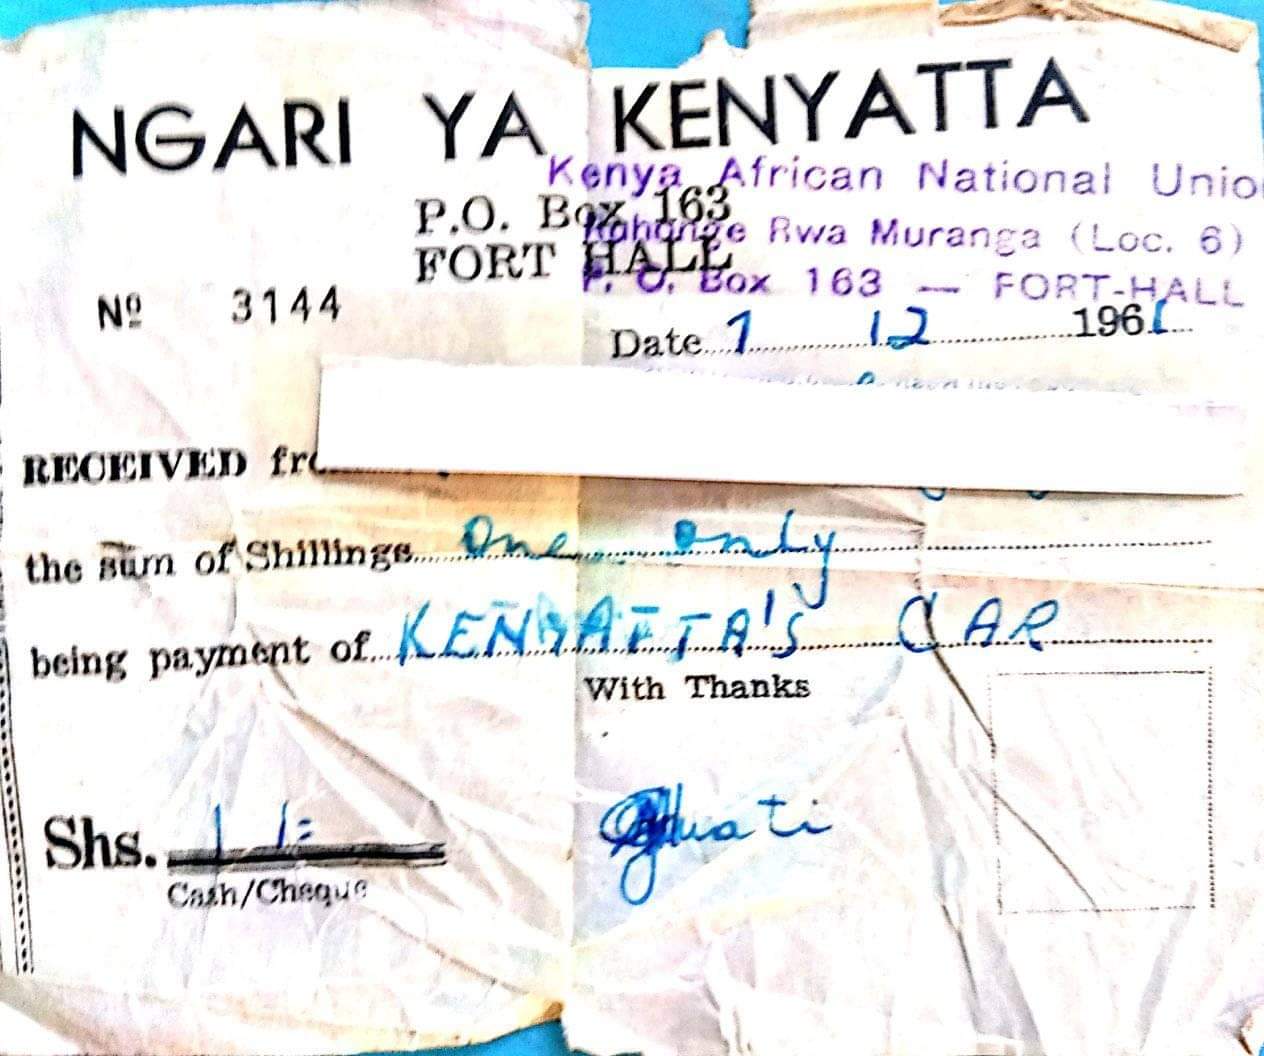 NGARI YA KENYATTA
Kenya African National Union
P.O. Box 163
Rwa Muranga (Loc. 6)
FORT HALL
P. O. Box 163 — FORT-HALL
Nº 3144
Date 1 12 1961
RECEIVED fro
the sum of Shillings One only
being payment of KENYATTA'S CAR
With Thanks
Shs. 1/=
Cash/Cheque